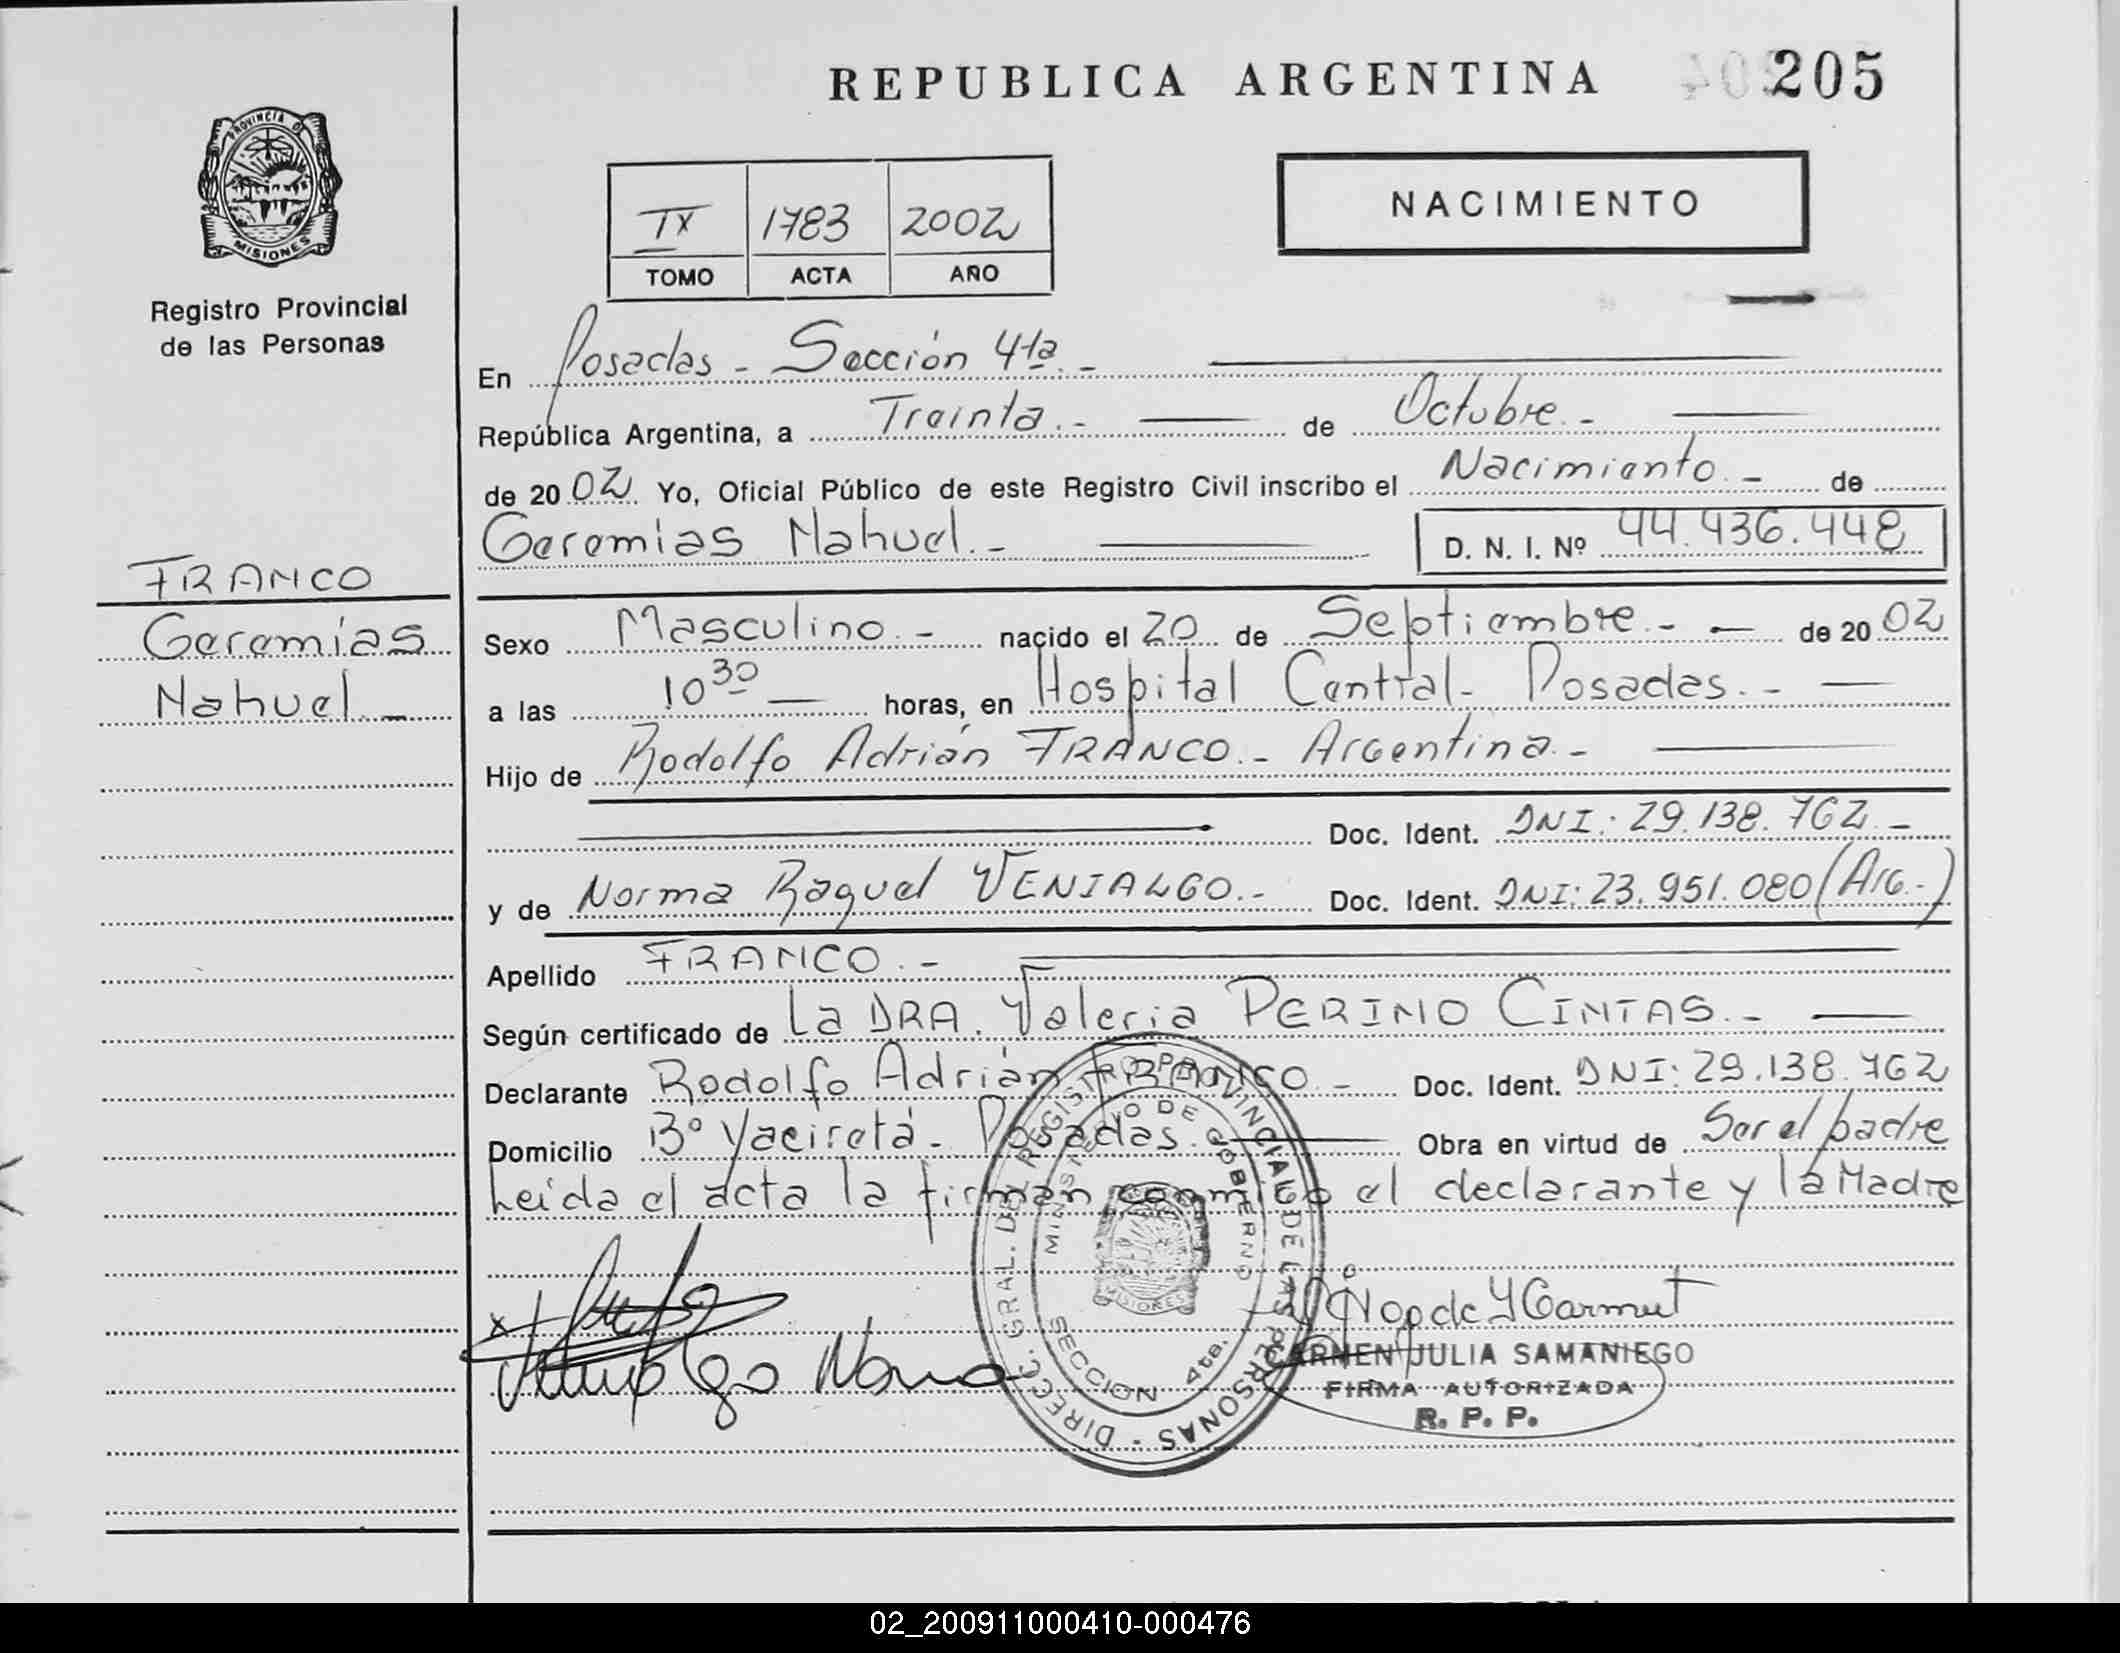 REPUBLICA ARGENTINA 205
PROVINCIA DE
MISIONES
Registro Provincial
de las Personas
NACIMIENTO
IX 1783 2002
TOMO ACTA AÑO
En Posadas - Sección 4ta. -
República Argentina, a Treinta. - de Octubre. -
de 2002 Yo, Oficial Público de este Registro Civil inscribo el Nacimiento. - de
Geremias Nahuel. - D. N. I. Nº 44.436.448
FRANCO
Geremías
Nahuel. -
Sexo Masculino. - nacido el 20 de Septiembre. - - de 2002
a las 10 30 - horas, en Hospital Central - Posadas. -
Hijo de Rodolfo Adrián FRANCO. - Argentina. -
Doc. Ident. DNI: 29.138.762 -
y de Norma Raquel VENIALGO. - Doc. Ident. DNI: 23.951.080 (Arg.-)
Apellido FRANCO. -
Según certificado de La DRA. Valeria PERINO CINTAS. -
Declarante Rodolfo Adrián FRANCO. - Doc. Ident. DNI: 29.138.762
Domicilio Bº Yaciretá - Posadas. Obra en virtud de Ser el padre
Leída el acta la firman conmigo el declarante y la Madre
DIRECC. GRAL. DEL REGISTRO PROVINCIAL DE LAS PERSONAS -
MINISTERIO DE GOBIERNO
MISIONES
SECCION 4ta.
x
CARMEN JULIA SAMANIEGO
FIRMA AUTORIZADA
R. P. P.
02_200911000410-000476